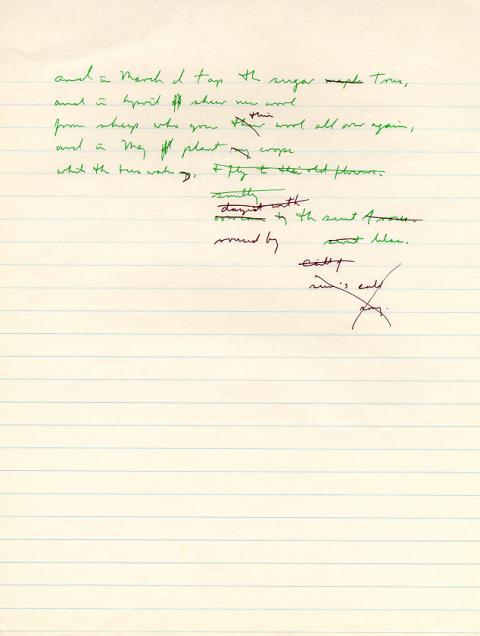 and in March I tap the sugar maple trees,
and in April I shear new wool
this
from sheep who grow their wool all over again,
and in May I plant my crops
while the bees wake, & fly to the old flowers.
smitty
dazed with
by the scent of roses.
roused by scent lilac.
call of
sun's cold
song.